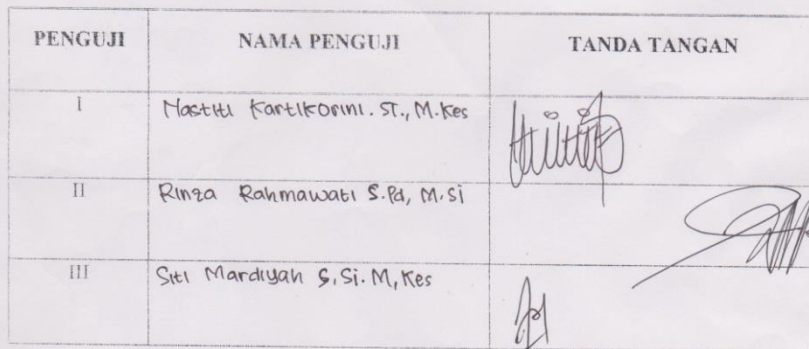 PENGUJI NAMA PENGUJI TANDA TANGAN
I Nastiti Kartikorini. ST., M.Kes
II Rinza Rahmawati S.Pd, M.Si
III Siti Mardiyah S,Si. M,Kes